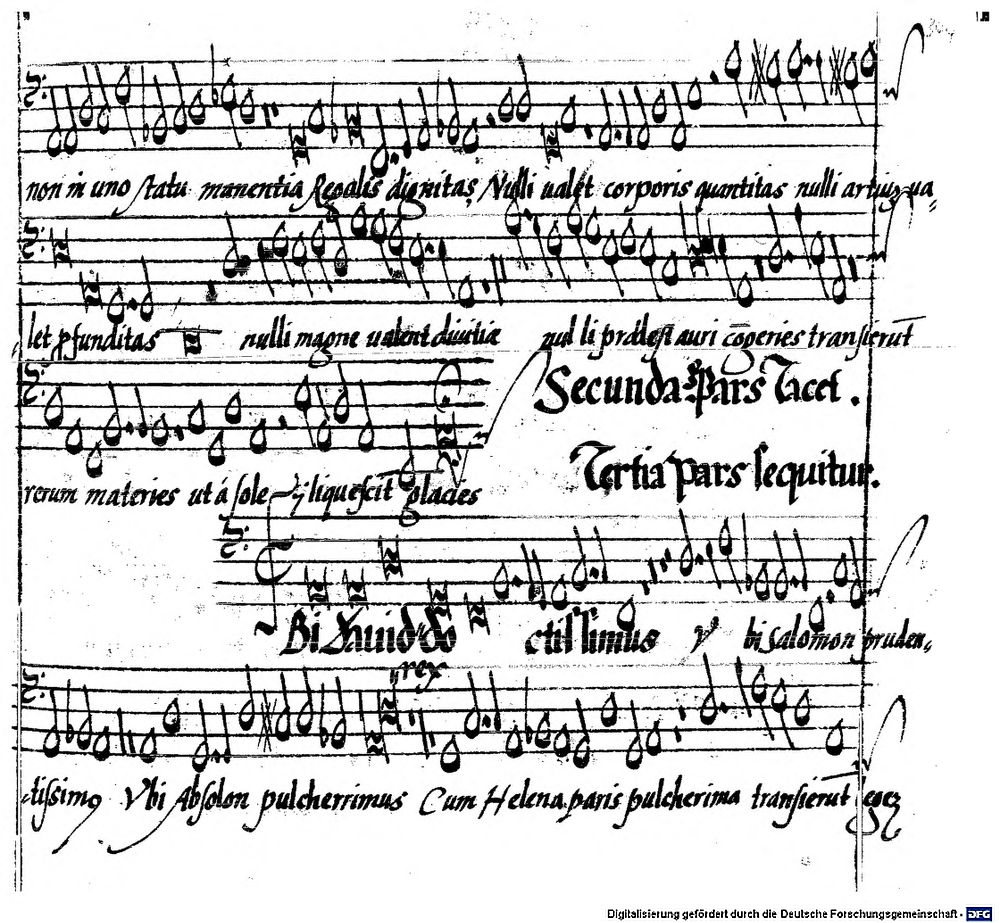 non in uno statu manentia Regalis dignitas, Nulli ualet corporis quantitas nulli artuiz ua
let pfunditas nulli magne ualent diuitiæ nul li prælest auri cōgeries transierut̄
Secunda Pars Tacet.
Tertia Pars sequitur.
rerum materies ut á sole ij liquescit glacies
Bi Dauid do ctissimus V bi Salomon pruden,
rex
tissimꝯ Vbi Absolon pulcherrimus Cum Helena paris pulcherima transierut̄ egez
Digitalisierung gefördert durch die Deutsche Forschungsgemeinschaft - DFG